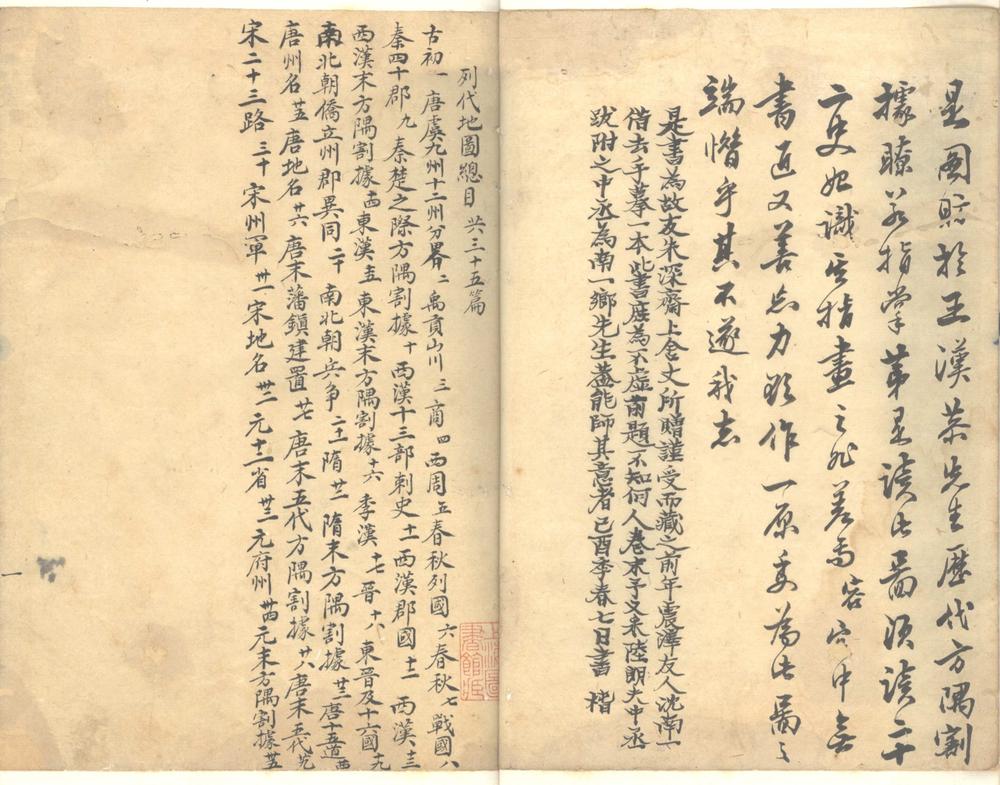 是圖賅於王漢恭先生歷代方隅割
據瞭若指掌第是讀此圖須讀二十
二史始識其指畫之非若專容穴中
書近又善忘力欲作一原委為此圖之
端惜乎其不遂我志
是書為故友朱深齋上舍丈所贈謹受而藏之前年震澤友人沈南一
借去手摹一本此書庶為不虛前題不知何人卷末予又采陸朗夫中丞
跋附之中丞為南一鄉先生蓋能師其意者己酉季春七日書 楷
列代地圖總目 共三十五篇
古初一 唐虞九州十二州分畧二 禹貢山川三 商四 西周五 春秋列國六 春秋七 戰國八
秦四十郡九 秦楚之際方隅割據十 西漢十三部刺史十一 西漢郡國十二 西漢十三
西漢末方隅割據十四 東漢十五 東漢末方隅割據十六 季漢十七 晉十八 東晉及十六國十九
南北朝僑立州郡異同二十 南北朝兵爭二十一 隋廿二 隋末方隅割據廿三 唐十五道廿四
唐州名廿五 唐地名廿六 唐末藩鎮建置廿七 唐末五代方隅割據廿八 唐末五代廿九
宋二十三路三十 宋州軍卅一 宋地名卅二 元十二省卅三 元府州卅四 元末方隅割據卅五
一